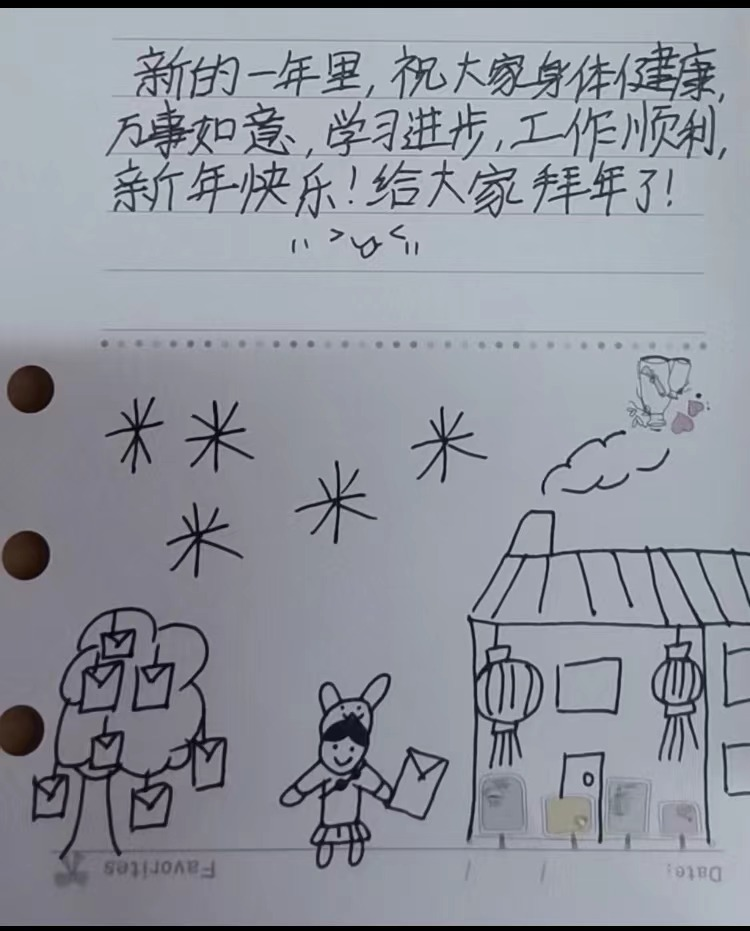 新的一年里,祝大家身体健康,
万事如意,学习进步,工作顺利,
新年快乐!给大家拜年了!
Favorites
Date: